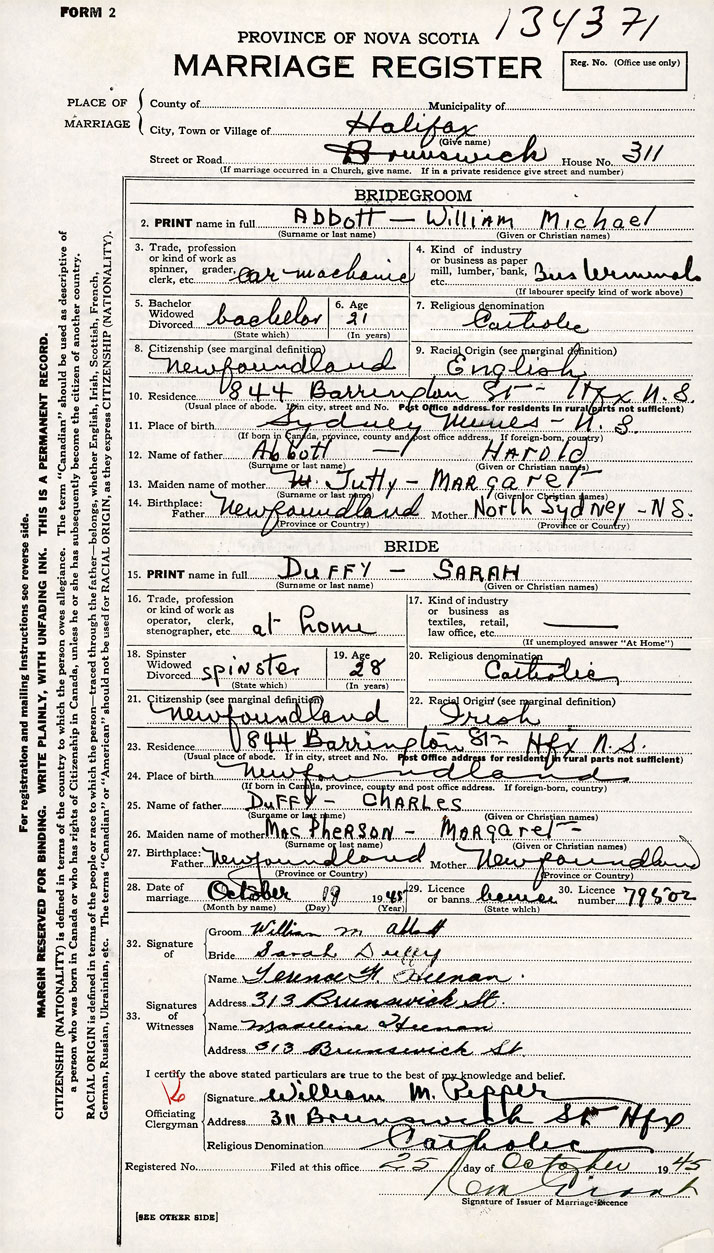 FORM 2
134371
PROVINCE OF NOVA SCOTIA
MARRIAGE REGISTER
Reg. No. (Office use only)
PLACE OF MARRIAGE
County of Municipality of
City, Town or Village of Halifax
(Give name)
Street or Road Brunswick House No. 311
(If marriage occurred in a Church, give name. If in a private residence give street and number)
BRIDEGROOM
2. PRINT name in full Abbott — William Michael
(Surname or last name) (Given or Christian names)
3. Trade, profession or kind of work as spinner, grader, clerk, etc. car machanic
4. Kind of industry or business as paper mill, lumber, bank, etc. Bus
(If labourer specify kind of work above)
5. Bachelor Widowed Divorced bachelor
(State which)
6. Age 21
(In years)
7. Religious denomination Catholic
8. Citizenship (see marginal definition) Newfoundland
9. Racial Origin (see marginal definition) English
10. Residence 844 Barrington St – Hfx N.S.
(Usual place of abode. If in city, street and No. Post Office address for residents in rural parts not sufficient)
11. Place of birth Sydney Mines – N.S.
(If born in Canada, province, county and post office address. If foreign-born, country)
12. Name of father Abbott — Harold
(Surname or last name) (Given or Christian names)
13. Maiden name of mother Tutty – Margaret
(Surname or last name) (Given or Christian names)
14. Birthplace: Father Newfoundland Mother North Sydney – NS.
(Province or Country) (Province or Country)
BRIDE
15. PRINT name in full Duffy – Sarah
(Surname or last name) (Given or Christian names)
16. Trade, profession or kind of work as operator, clerk, stenographer, etc. at home
17. Kind of industry or business as textiles, retail, law office, etc. —
(If unemployed answer "At Home")
18. Spinster Widowed Divorced spinster
(State which)
19. Age 28
(In years)
20. Religious denomination Catholic
21. Citizenship (see marginal definition) Newfoundland
22. Racial Origin (see marginal definition) Irish
23. Residence 844 Barrington St – Hfx N.S.
(Usual place of abode. If in city, street and No. Post Office address for residents in rural parts not sufficient)
24. Place of birth Newfoundland
(If born in Canada, province, county and post office address. If foreign-born, country)
25. Name of father Duffy – Charles
(Surname or last name) (Given or Christian names)
26. Maiden name of mother MacPherson – Margaret –
(Surname or last name) (Given or Christian names)
27. Birthplace: Father Newfoundland Mother Newfoundland
(Province or Country) (Province or Country)
28. Date of marriage October 19 1945
(Month by name) (Day) (Year)
29. Licence or banns
(State which)
30. Licence number 79502
32. Signature of
Groom William M. Abbott
Bride Sarah Duffy
33. Signatures of Witnesses
Name Terence F. Heenan
Address 313 Brunswick St.
Name Madeline Heenan
Address 313 Brunswick St.
I certify the above stated particulars are true to the best of my knowledge and belief.
Officiating Clergyman
Signature William M. Pepper
Address 311 Brunswick St Hfx
Religious Denomination Catholic
Registered No. Filed at this office 25 day of October 1945
Signature of Issuer of Marriage Licence
[SEE OTHER SIDE]
For registration and mailing instructions see reverse side.
MARGIN RESERVED FOR BINDING. WRITE PLAINLY, WITH UNFADING INK. THIS IS A PERMANENT RECORD.
CITIZENSHIP (NATIONALITY) is defined in terms of the country to which the person owes allegiance. The term "Canadian" should be used as descriptive of
a person who was born in Canada or who has rights of Citizenship in Canada, unless he or she has subsequently become the citizen of another country.
RACIAL ORIGIN is defined in terms of the people or race to which the person—traced through the father—belongs, whether English, Irish, Scottish, French,
German, Russian, Ukrainian, etc. The terms "Canadian" or "American" should not be used for RACIAL ORIGIN, as they express CITIZENSHIP (NATIONALITY).